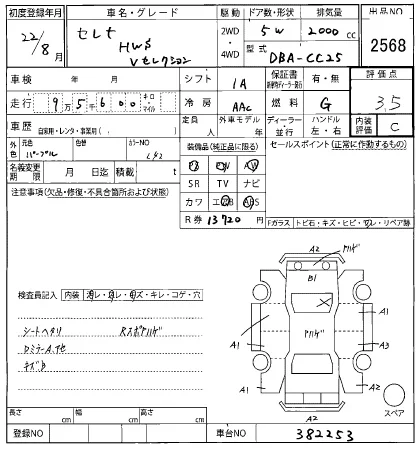 初度登録年月 車名・グレード 駆動 ドア数・形状 排気量 出品NO
22/8月 セレナ HWS Vセレクション 2WD・4WD 5W 2000cc 2568
型式 DBA-CC25
車検 年 月 シフト IA 保証書 有・無 評価点
走行 9万5千600 キロ・マイル 冷房 AAC 燃料 G 3.5
車歴 自家用・レンタ・事業用( ) 定員 人 外車モデル 年 ディーラー・並行 ハンドル 左・右 内装評価 C
外色 元色 パープル 色替 カラーNO 装備品(純正品に限る) セールスポイント(正常に作動するもの)
名義変更期限 月 日迄 積載 t PS PW AW
SR TV ナビ
注意事項(欠品・修復・不具合箇所および状態) カワ エアB ABS
R券 13720円 Fガラス トビ石・キズ・ヒビ・ワレ・リペア跡
A2
B1
検査員記入 内装 汚レ・コゲ・穴
シートヘタリ
A1 A1
A1 A3
A1 A2
A2
スペア
長さ cm 幅 cm 高さ cm
登録NO 車台NO 382253